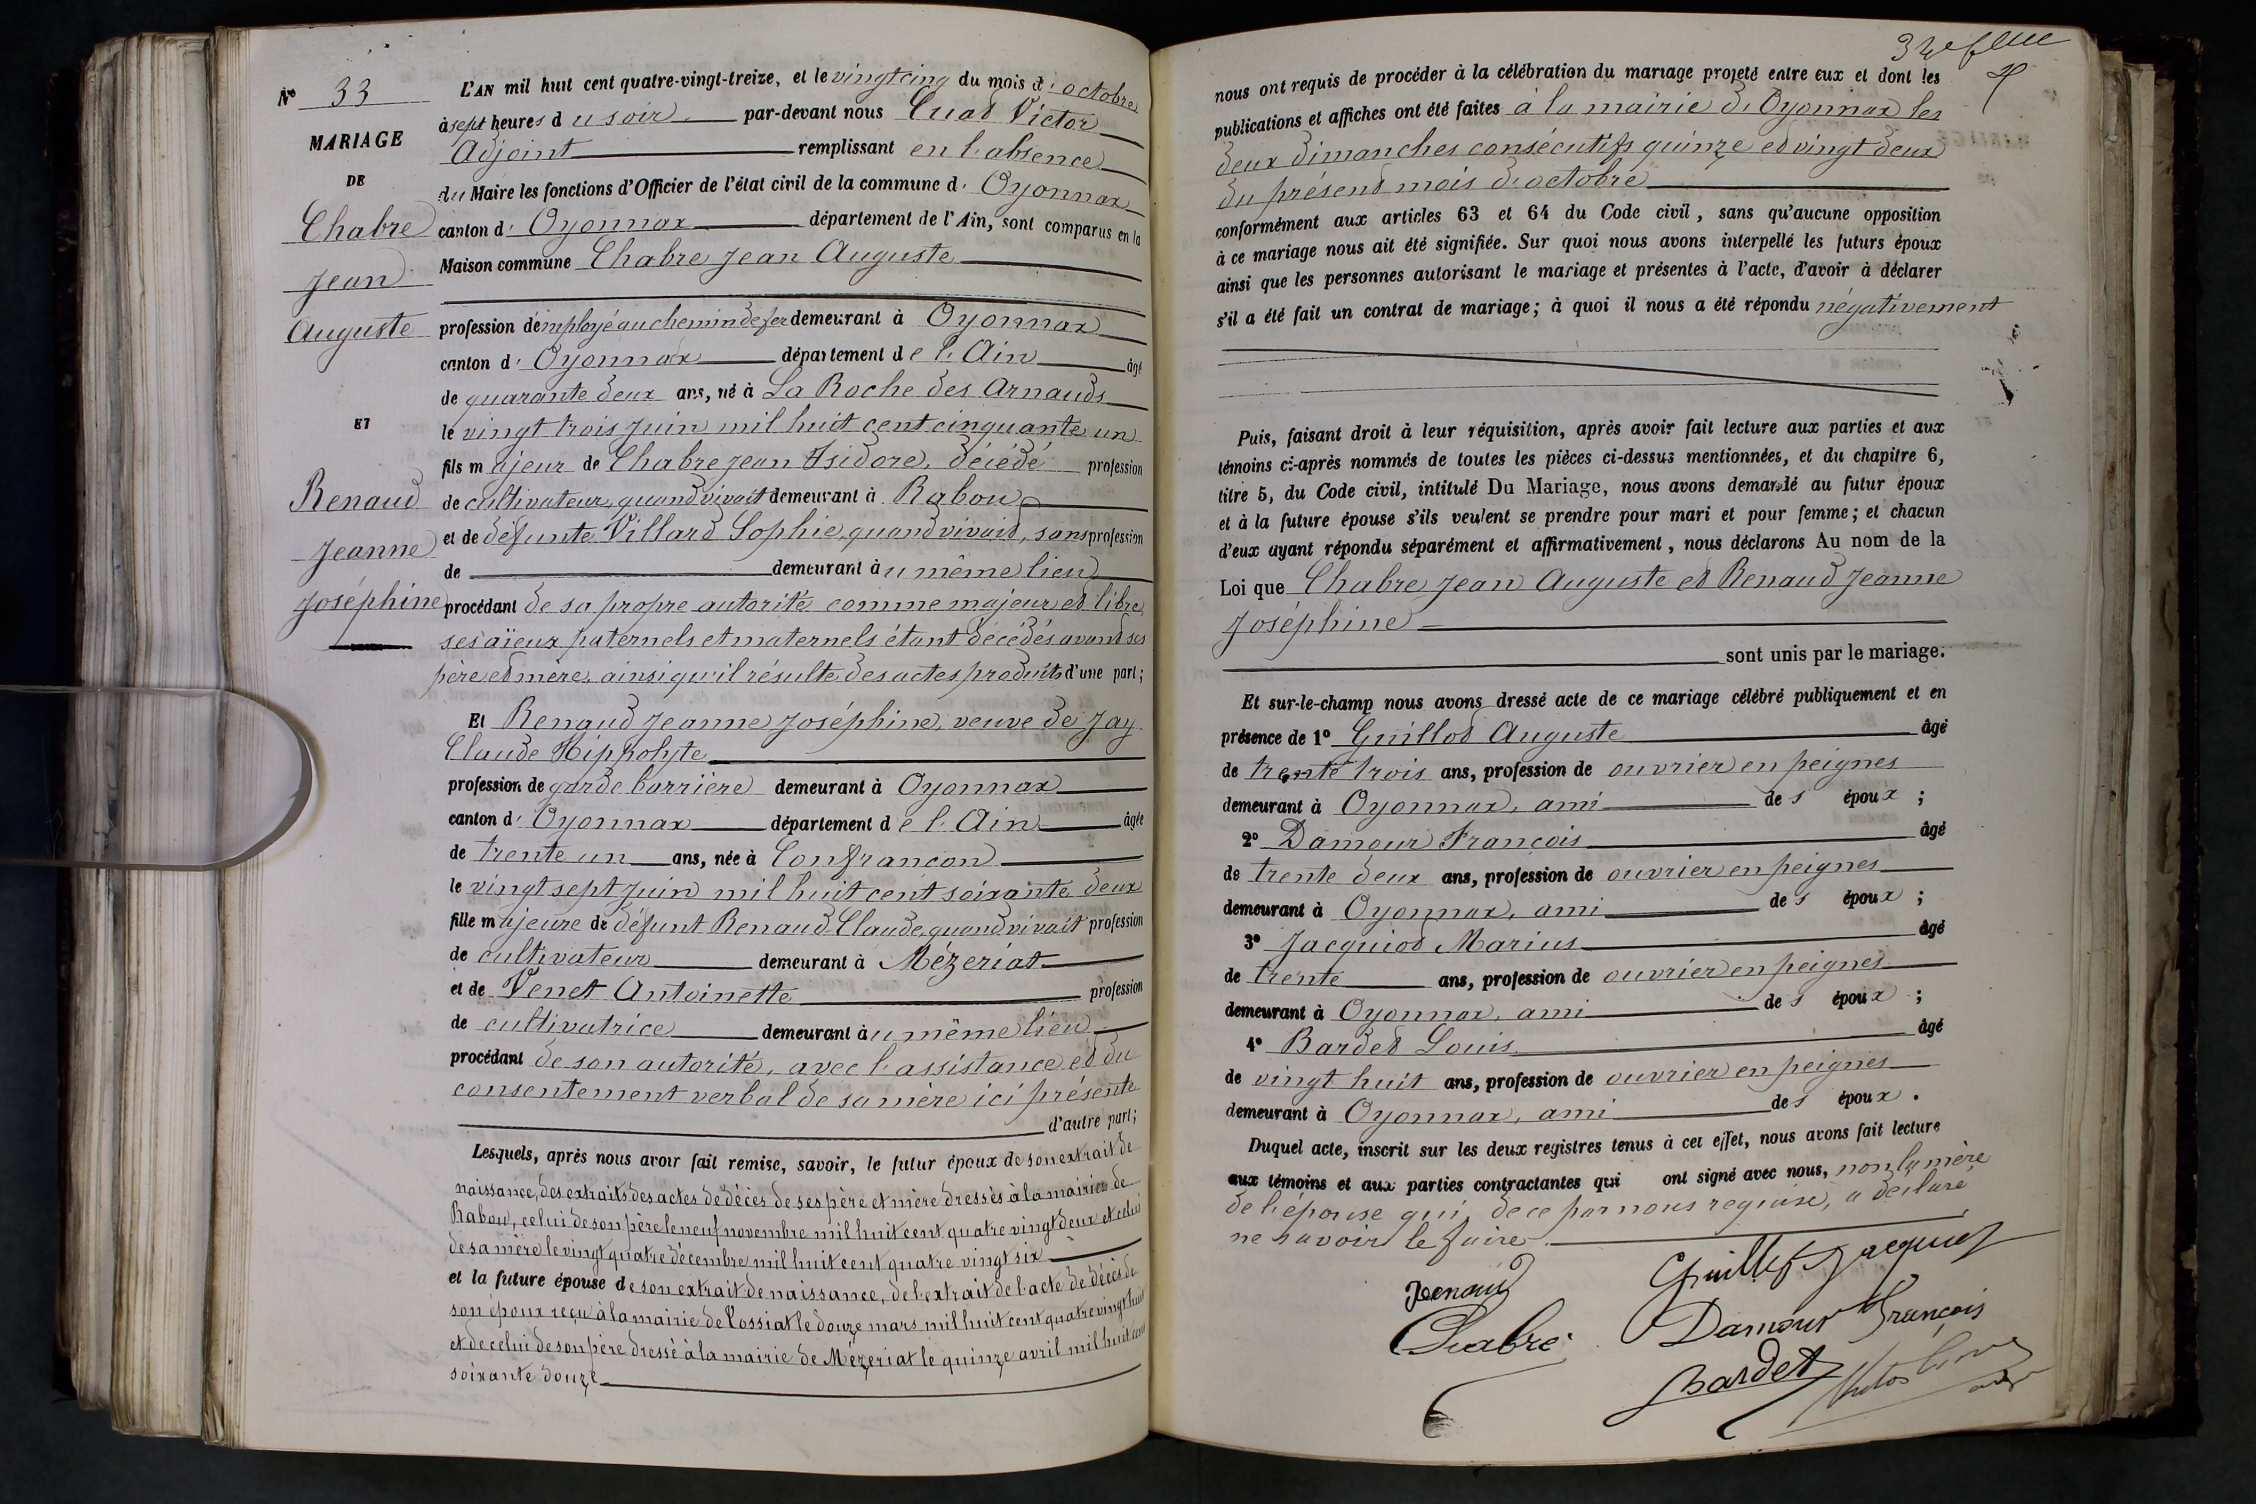 N° 33
MARIAGE
DE
Chabre
Jean
Auguste
ET
Renaud
Jeanne
Joséphine
L'AN mil huit cent quatre-vingt-treize, et le vingt cinq du mois d'octobre
à sept heures du soir par-devant nous Cuad Victor
Adjoint remplissant en l'absence
du Maire les fonctions d'Officier de l'état civil de la commune d'Oyonnax
canton d'Oyonnax département de l'Ain, sont comparus en la
Maison commune Chabre Jean Auguste
profession d'employé au chemin de fer demeurant à Oyonnax
canton d'Oyonnax département de l'Ain âgé
de quarante deux ans, né à La Roche des Arnauds
le vingt trois Juin mil huit cent cinquante un
fils majeur de Chabre Jean Isidore, décédé profession
de cultivateur, quand vivait demeurant à Rabou
et de défunte Villard Sophie, quand vivait, sans profession
de demeurant au même lieu
procédant de sa propre autorité comme majeur et libre,
ses aïeux paternels et maternels étant décédés avant ses
père et mère, ainsi qu'il résulte des actes produits d'une part;
Et Renaud Jeanne Joséphine, veuve de Jay
Claude Hippolyte
profession de garde barrière demeurant à Oyonnax
canton d'Oyonnax département de l'Ain âgée
de trente un ans, née à Confrançon
le vingt sept Juin mil huit cent soixante deux
fille majeure de défunt Renaud Claude, quand vivait profession
de cultivateur demeurant à Mézériat
et de Venet Antoinette profession
de cultivatrice demeurant au même lieu
procédant de son autorité, avec l'assistance et du
consentement verbal de sa mère ici présente
d'autre part;
Lesquels, après nous avoir fait remise, savoir, le futur époux de son extrait de
naissance, des extraits des actes de décès de ses père et mère dressés à la mairie de
Rabou, celui de son père le neuf novembre mil huit cent quatre vingt deux et celui
de sa mère le vingt quatre décembre mil huit cent quatre vingt six
et la future épouse de son extrait de naissance, de l'extrait de l'acte de décès de
son époux reçu à la mairie de Cossiat le douze mars mil huit cent quatre vingt huit
et de celui de son père dressé à la mairie de Mézeriat le quinze avril mil huit cent
soixante douze
32e feuille
nous ont requis de procéder à la célébration du mariage projeté entre eux et dont les
publications et affiches ont été faites à la mairie d'Oyonnax les
deux dimanches consécutifs quinze et vingt deux
du présent mois d'octobre
conformément aux articles 63 et 64 du Code civil, sans qu'aucune opposition
à ce mariage nous ait été signifiée. Sur quoi nous avons interpellé les futurs époux
ainsi que les personnes autorisant le mariage et présentes à l'acte, d'avoir à déclarer
s'il a été fait un contrat de mariage; à quoi il nous a été répondu négativement
Puis, faisant droit à leur réquisition, après avoir fait lecture aux parties et aux
témoins ci-après nommés de toutes les pièces ci-dessus mentionnées, et du chapitre 6,
titre 5, du Code civil, intitulé Du Mariage, nous avons demandé au futur époux
et à la future épouse s'ils veulent se prendre pour mari et pour femme; et chacun
d'eux ayant répondu séparément et affirmativement, nous déclarons Au nom de la
Loi que Chabre Jean Auguste et Renaud Jeanne
Joséphine
sont unis par le mariage.
Et sur-le-champ nous avons dressé acte de ce mariage célébré publiquement et en
présence de 1° Guillot Auguste âgé
de trente trois ans, profession de ouvrier en peignes
demeurant à Oyonnax, ami des époux;
2° Damour François âgé
de trente deux ans, profession de ouvrier en peignes
demeurant à Oyonnax, ami des époux;
3° Jacquiot Marius âgé
de trente ans, profession de ouvrier en peignes
demeurant à Oyonnax, ami des époux;
4° Bardet Louis âgé
de vingt huit ans, profession de ouvrier en peignes
demeurant à Oyonnax, ami des époux.
Duquel acte, inscrit sur les deux registres tenus à cet effet, nous avons fait lecture
aux témoins et aux parties contractantes qui ont signé avec nous, non la mère
de l'épouse qui, de ce par nous requise, a déclaré
ne savoir le faire.
Renaud Guillot Jacquiot
Chabre Damour François
Bardet